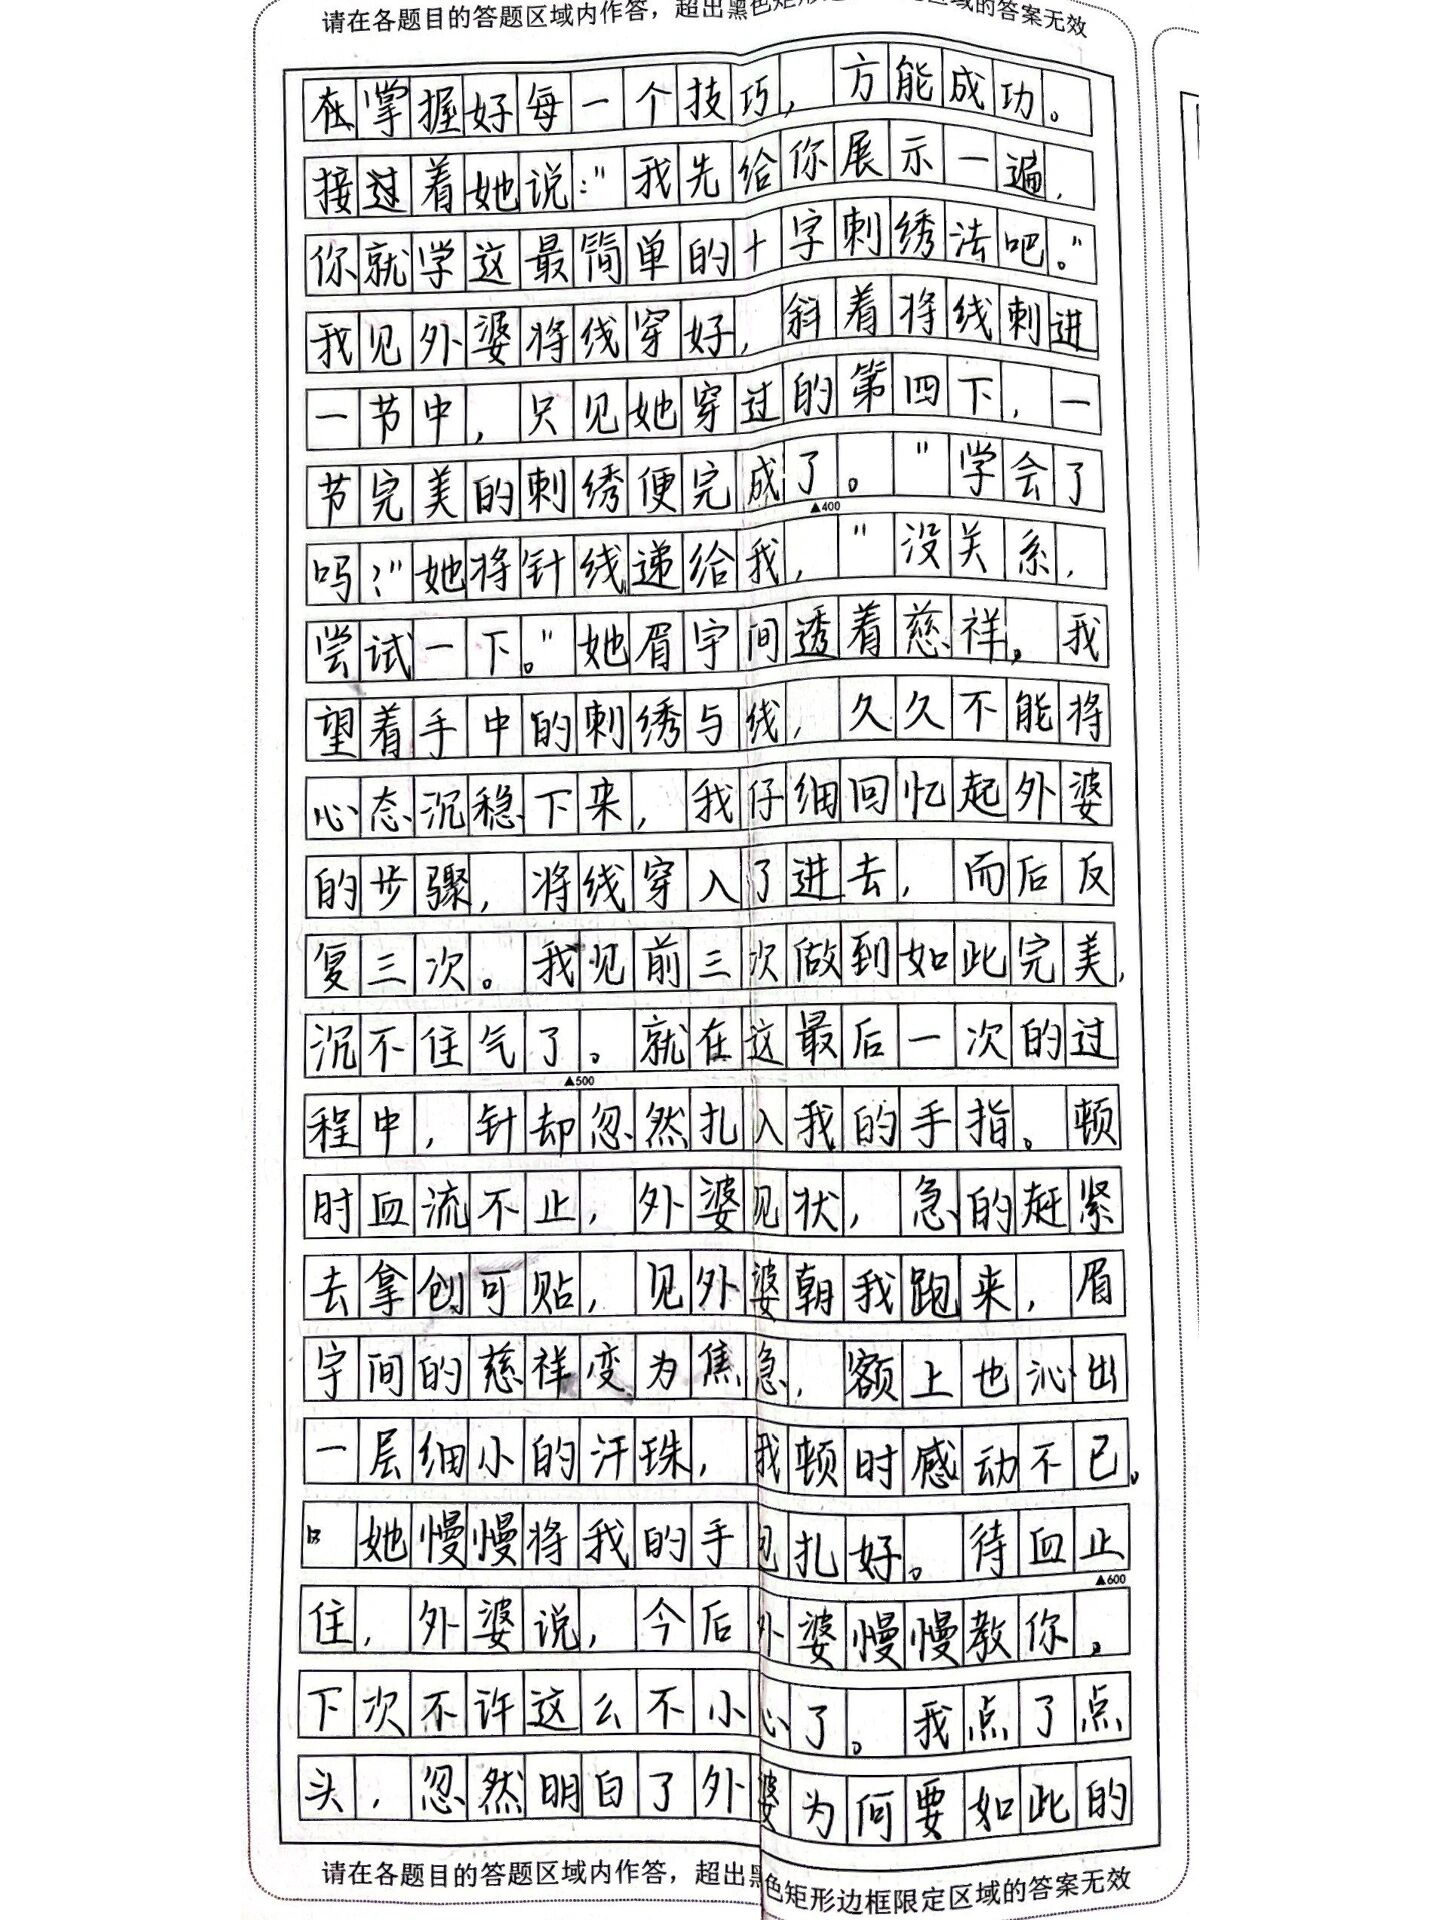 请在各题目的答题区域内作答，超出黑色矩形边框限定区域的答案无效
在掌握好每一个技巧，方能成功。
接过着她说："我先给你展示一遍，
你就学这最简单的十字刺绣法吧。"
我见外婆将线穿好，斜着将线刺进
一节中，只见她穿过的第四下，一
节完美的刺绣便完成了。"学会了
▲400
吗？"她将针线递给我，"没关系，
尝试一下。"她眉宇间透着慈祥。我
望着手中的刺绣与线，久久不能将
心态沉稳下来，我仔细回忆起外婆
的步骤，将线穿入了进去，而后反
复三次。我见前三次做到如此完美，
沉不住气了。就在这最后一次的过
▲500
程中，针却忽然扎入我的手指。顿
时血流不止，外婆见状，急的赶紧
去拿创可贴，见外婆朝我跑来，眉
宇间的慈祥变为焦急，额上也沁出
一层细小的汗珠，我顿时感动不已。
她慢慢将我的手包扎好。待血止
▲600
住，外婆说，今后外婆慢慢教你。
下次不许这么不小心了。我点了点
头，忽然明白了外婆为何要如此的
请在各题目的答题区域内作答，超出黑色矩形边框限定区域的答案无效